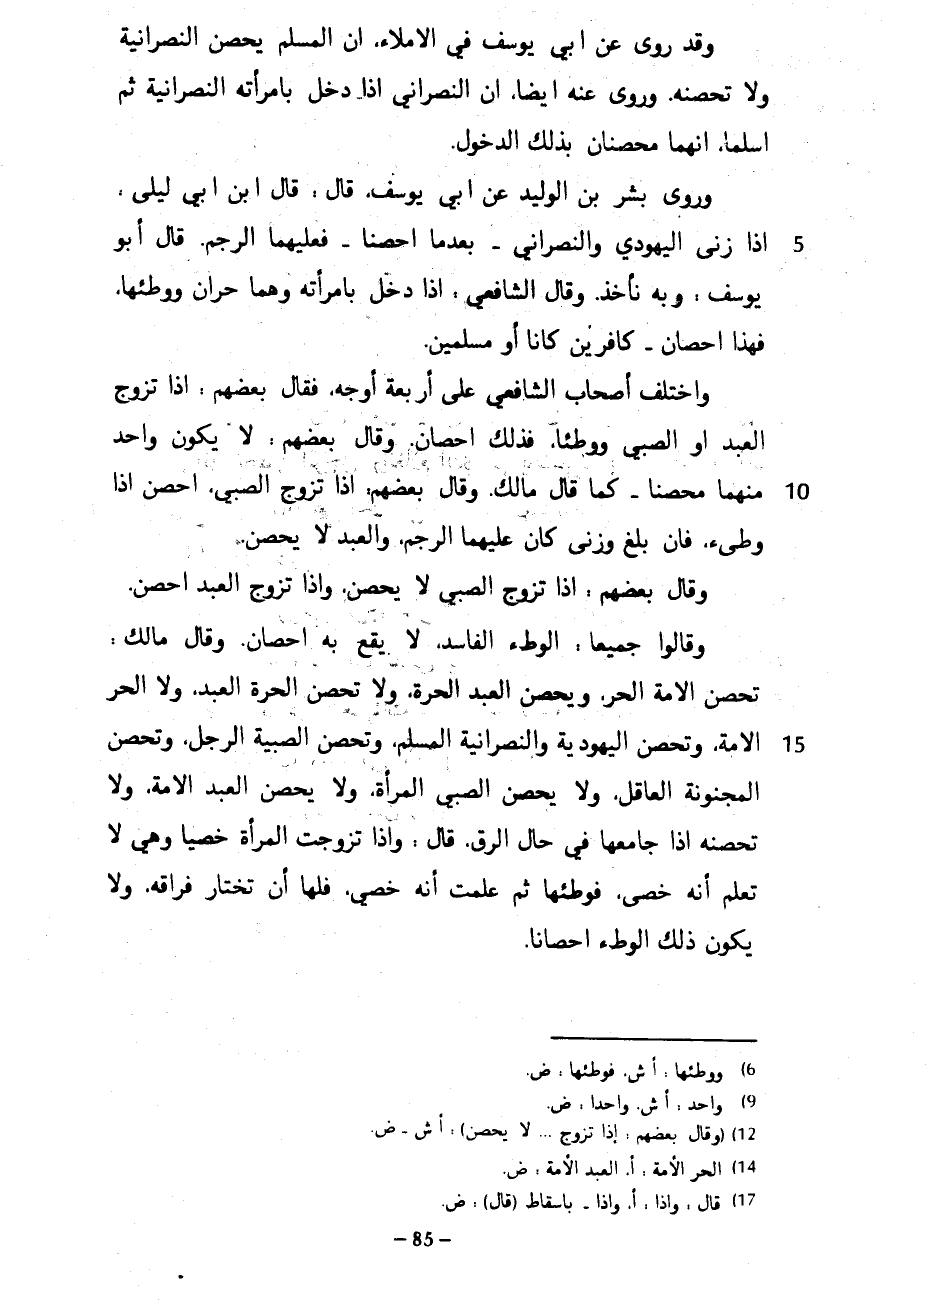 وقد روى عن ابي يوسف في الاملاء، ان المسلم يحصن النصرانية
ولا تحصنه. وروى عنه ايضا، ان النصراني اذا دخل بامرأته النصرانية ثم
اسلما، انهما محصنان بذلك الدخول.
وروى بشر بن الوليد عن ابي يوسف، قال : قال ابن ابي ليلى :
5 اذا زنى اليهودي والنصراني ـ بعدما احصنا ـ فعليهما الرجم. قال أبو
يوسف : وبه نأخذ. وقال الشافعي : اذا دخل بامرأته وهما حران ووطئها،
فهذا احصان ـ كافرين كانا أو مسلمين.
واختلف أصحاب الشافعي على أربعة أوجه، فقال بعضهم : اذا تزوج
العبد او الصبي ووطئا، فذلك احصان. وقال بعضهم : لا يكون واحد
10 منهما محصنا ـ كما قال مالك. وقال بعضهم: اذا تزوج الصبي، احصن اذا
وطىء، فان بلغ وزنى كان عليهما الرجم، والعبد لا يحصن.
وقال بعضهم : اذا تزوج الصبي لا يحصن، واذا تزوج العبد احصن.
وقالوا جميعا : الوطء الفاسد، لا يقع به احصان. وقال مالك :
تحصن الامة الحر، ويحصن العبد الحرة، ولا تحصن الحرة العبد، ولا الحر
15 الامة، وتحصن اليهودية والنصرانية المسلم، وتحصن الصبية الرجل، وتحصن
المجنونة العاقل، ولا يحصن الصبي المرأة، ولا يحصن العبد الامة، ولا
تحصنه اذا جامعها في حال الرق، قال : واذا تزوجت المرأة خصيا وهي لا
تعلم أنه خصى، فوطئها ثم علمت أنه خصي، فلها أن تختار فراقه، ولا
يكون ذلك الوطء احصانا.
6) ووطئها : أ ش. فوطئها : ض.
9) واحد : أ ش. واحدا : ض.
12) (وقال بعضهم : إذا تزوج ... لا يحصن) : أ ش ـ ض.
14) الحر الأمة : أ. العبد الأمة : ض.
17) قال : واذا : أ. واذا ـ باسقاط (قال) : ض.
– 85 –